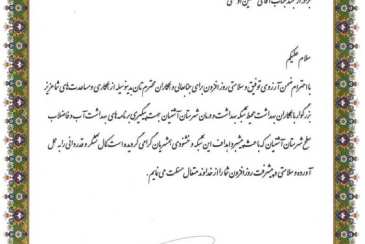 سلام علیکم
با احترام ضمن آرزوی توفیق و سلامتی روز افزون برای جنابعالی و همکاران محترمتان بدینوسیله از همکاری و مساعدت های شما عزیز
بزرگوار با همکاران بهداشت محیط شبکه بهداشت و درمان شهرستان آشتیان جهت پیگیری برنامه های بهداشت آب و فاضلاب
سطح شهرستان آشتیان که باعث پیشبرد اهداف این شبکه و خشنودی همشهریان گرامی گردیده است کمال تشکر و قدردانی را به عمل
آورده و سلامتی و پیشرفت روز افزون شما را از خداوند متعال مسئلت می نمایم.